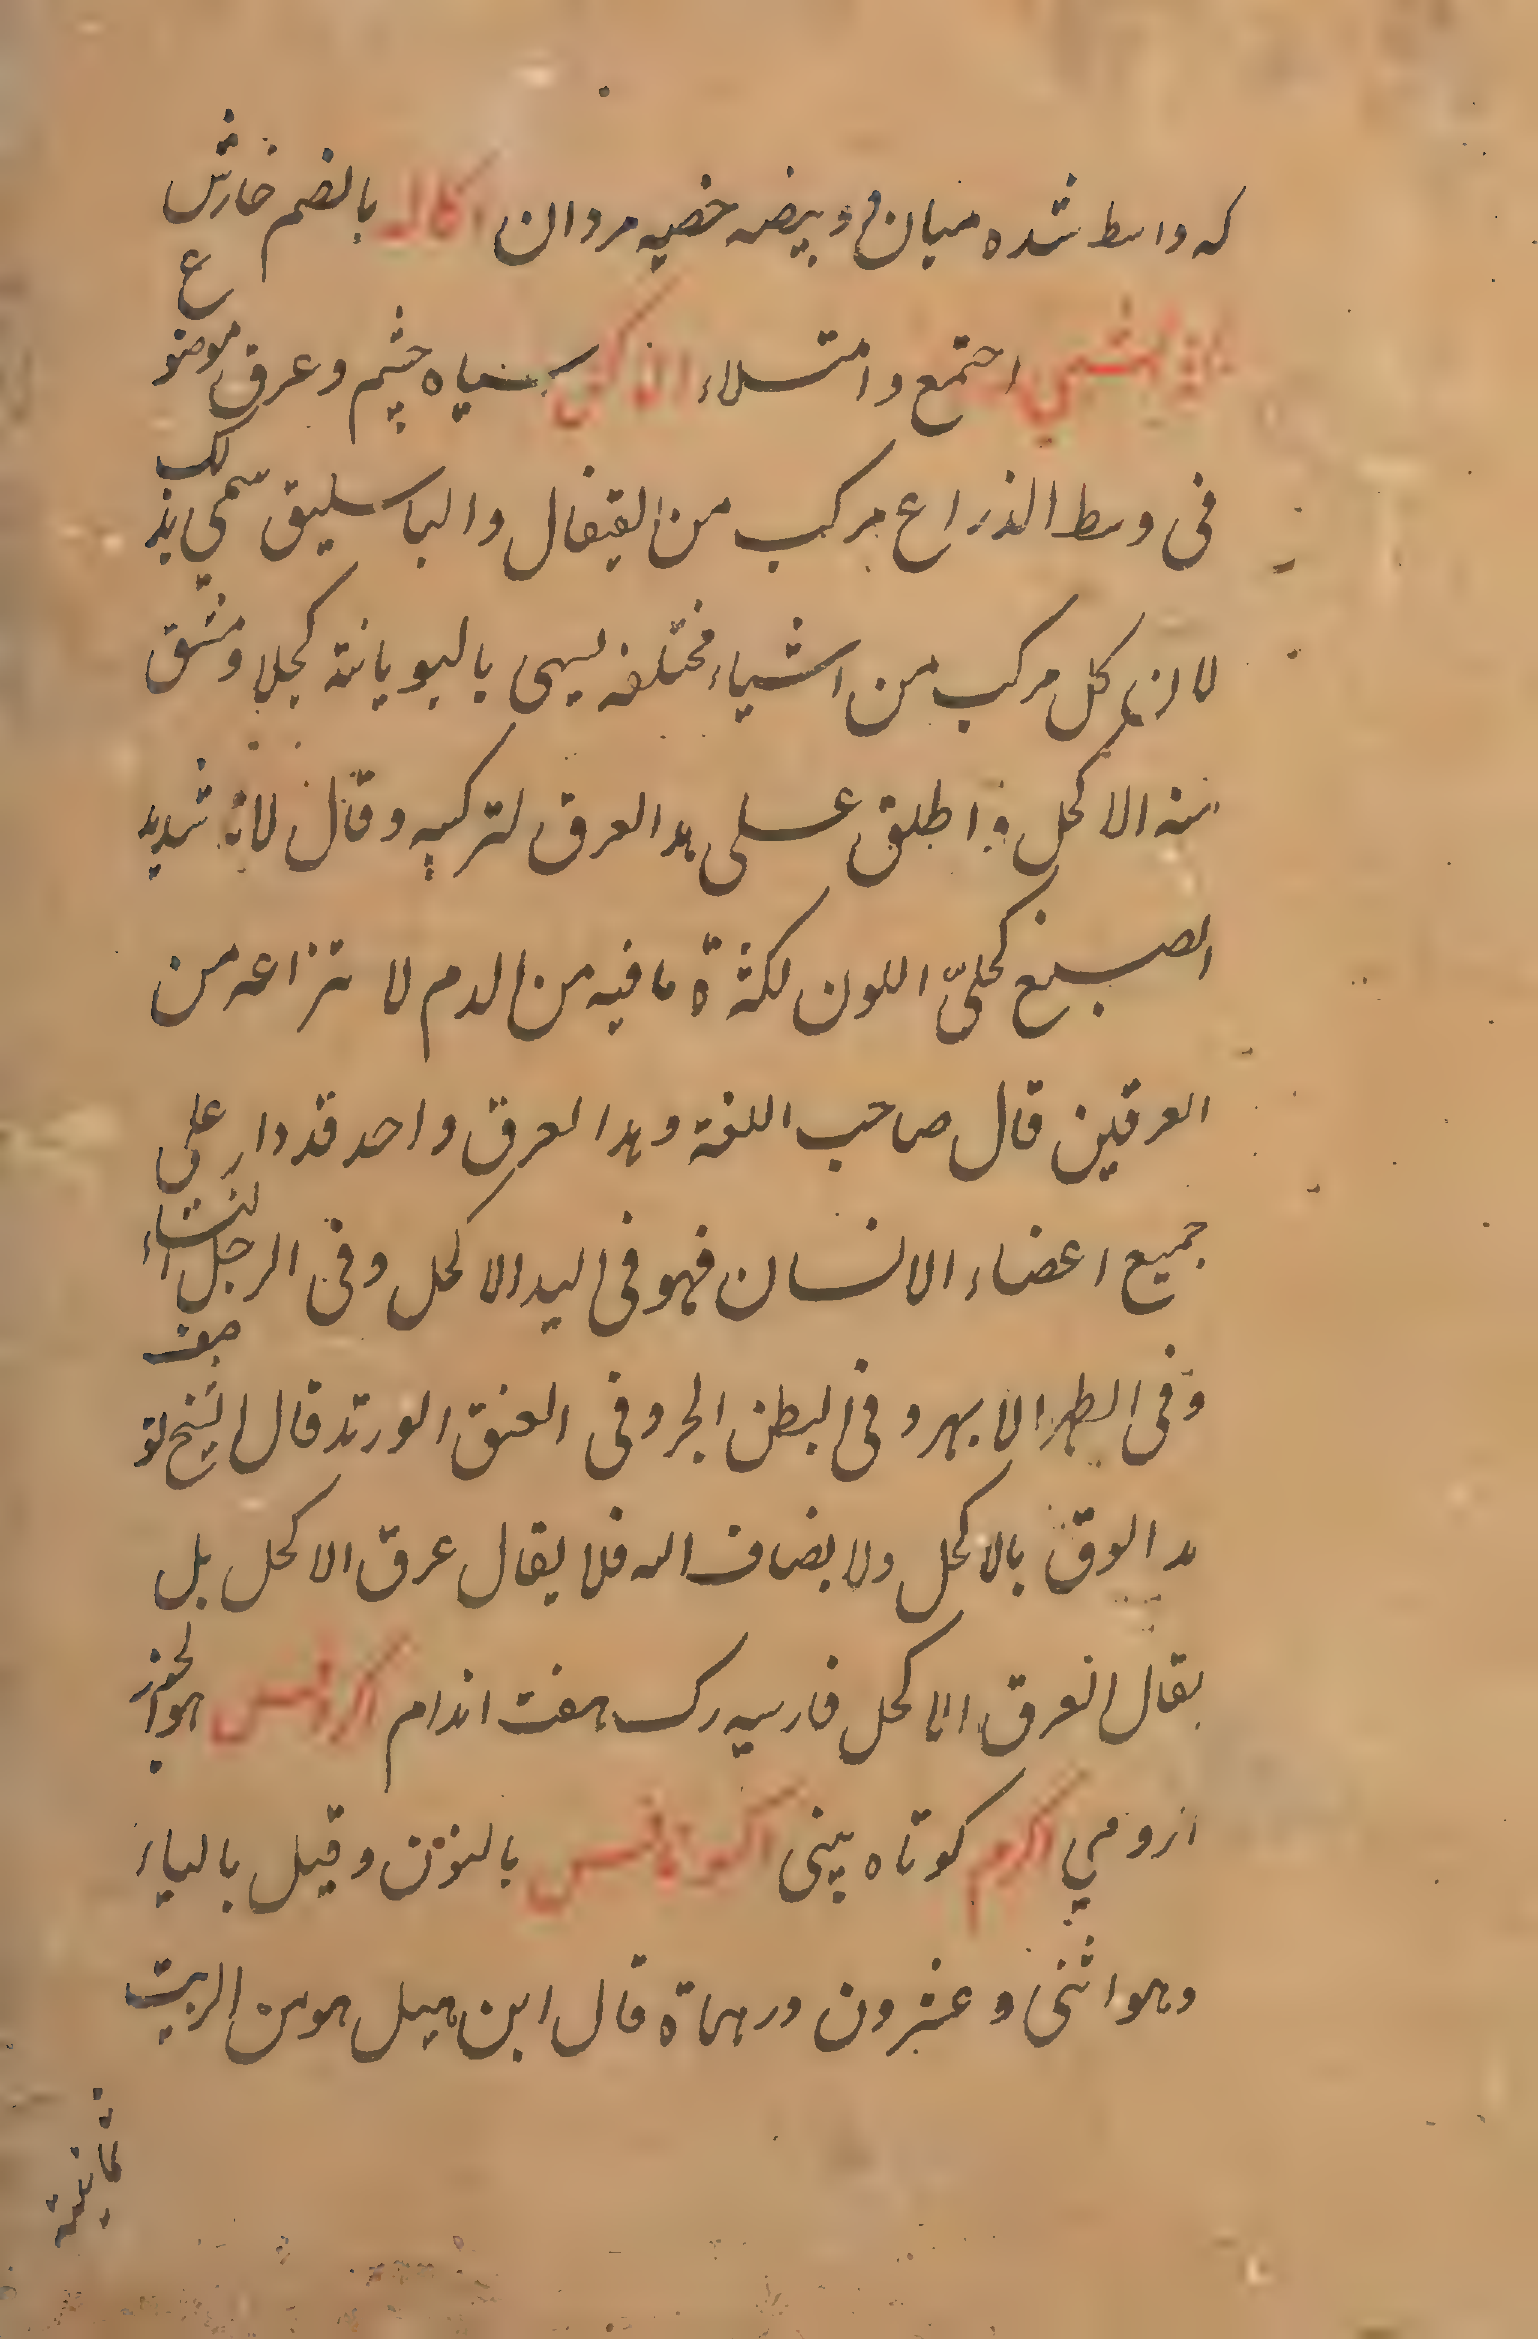 که واسط شده میان و بیضه خصیه مردان اکاله بالضم خارش
اجتمع و امتلاء سیاه چشم و عرق موضوع
فی وسط الذراع مرکب من القیفال والباسلیق سمی بذلک
لان کل مرکب من اشیاء مختلفه یسمی بالیونانیة کحلا و مشق
منه الاکحل و اطلق علی هذا العرق لترکیبه و قال لانه شدید
الصبغ کحلیّ اللون لکثرة ما فیه من الدم لا تنزاعه من
العرقین قال صاحب اللغة و هذا العرق واحد قد دار علی
جمیع اعضاء الانسان فهو فی الید الاکحل و فی الرجل النساء
و فی الظهر الابهر و فی البطن الجر و فی العنق الورید قال الشیخ توصف
هذا العرق بالاکحل و لا یضاف الیه فلا یقال عرق الاکحل بل
یقال العرق الاکحل فارسیه رک هفت اندام هو الجوز
الرومی اکرم کوتاه بینی بالنون و قیل بالیاء
و هو اثنی و عشرون درهماة قال ابن هبل هو من الزیت
ثمانیة